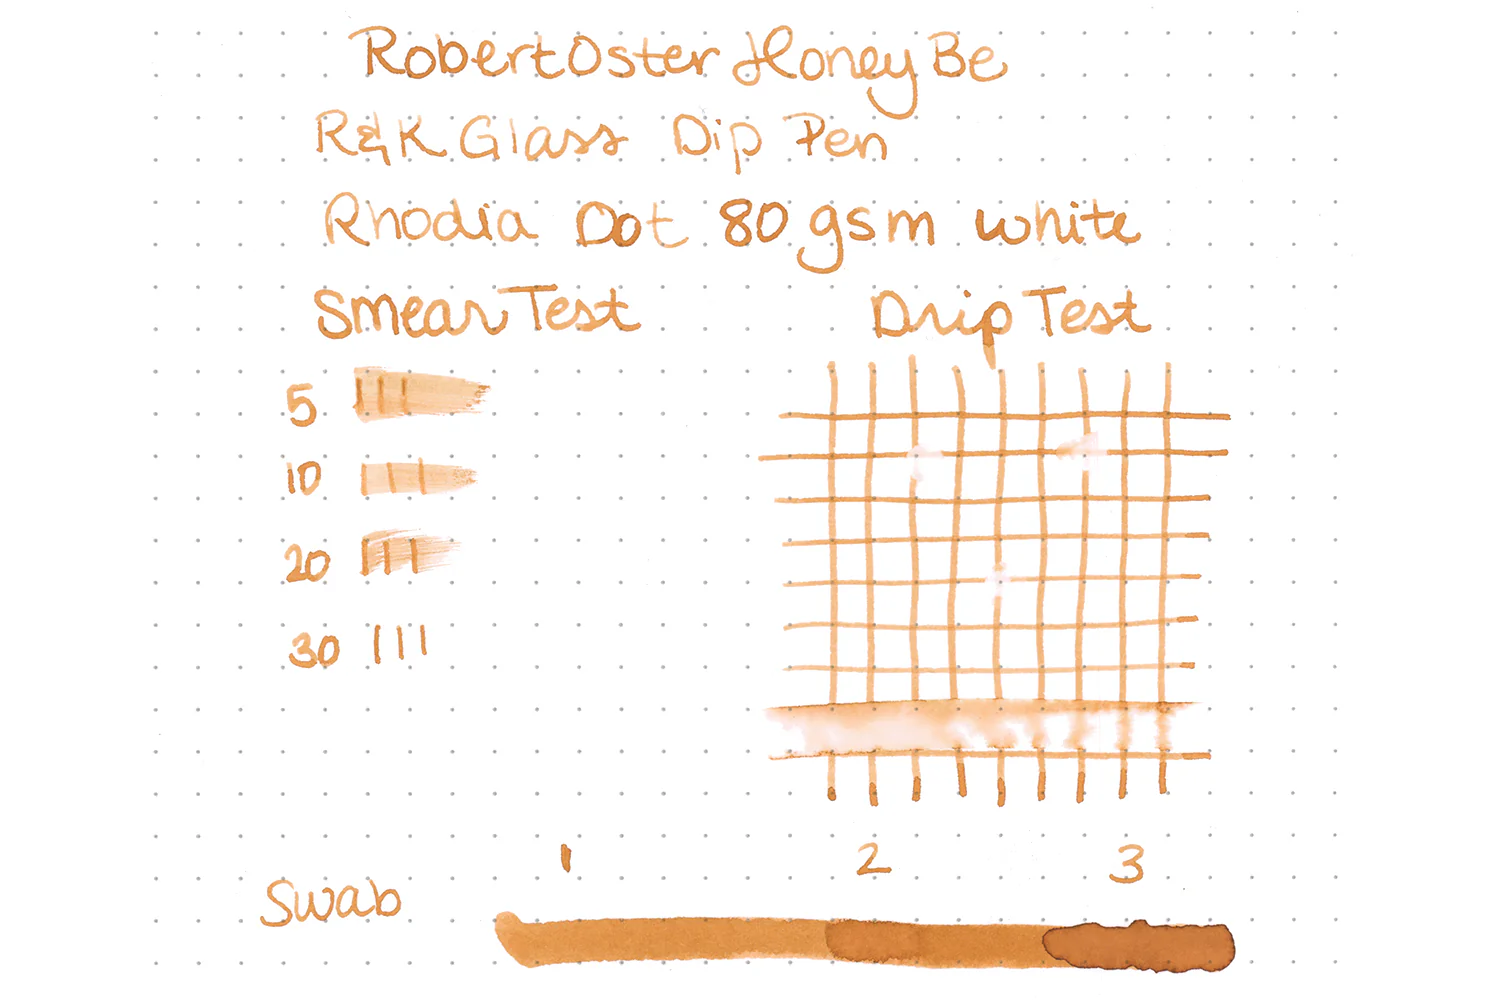 Robert Oster Honey Be
R&K Glass Dip Pen
Rhodia Dot 80 gsm white
Smear Test Drip Test
5
10
20
30
1 2 3
Swab